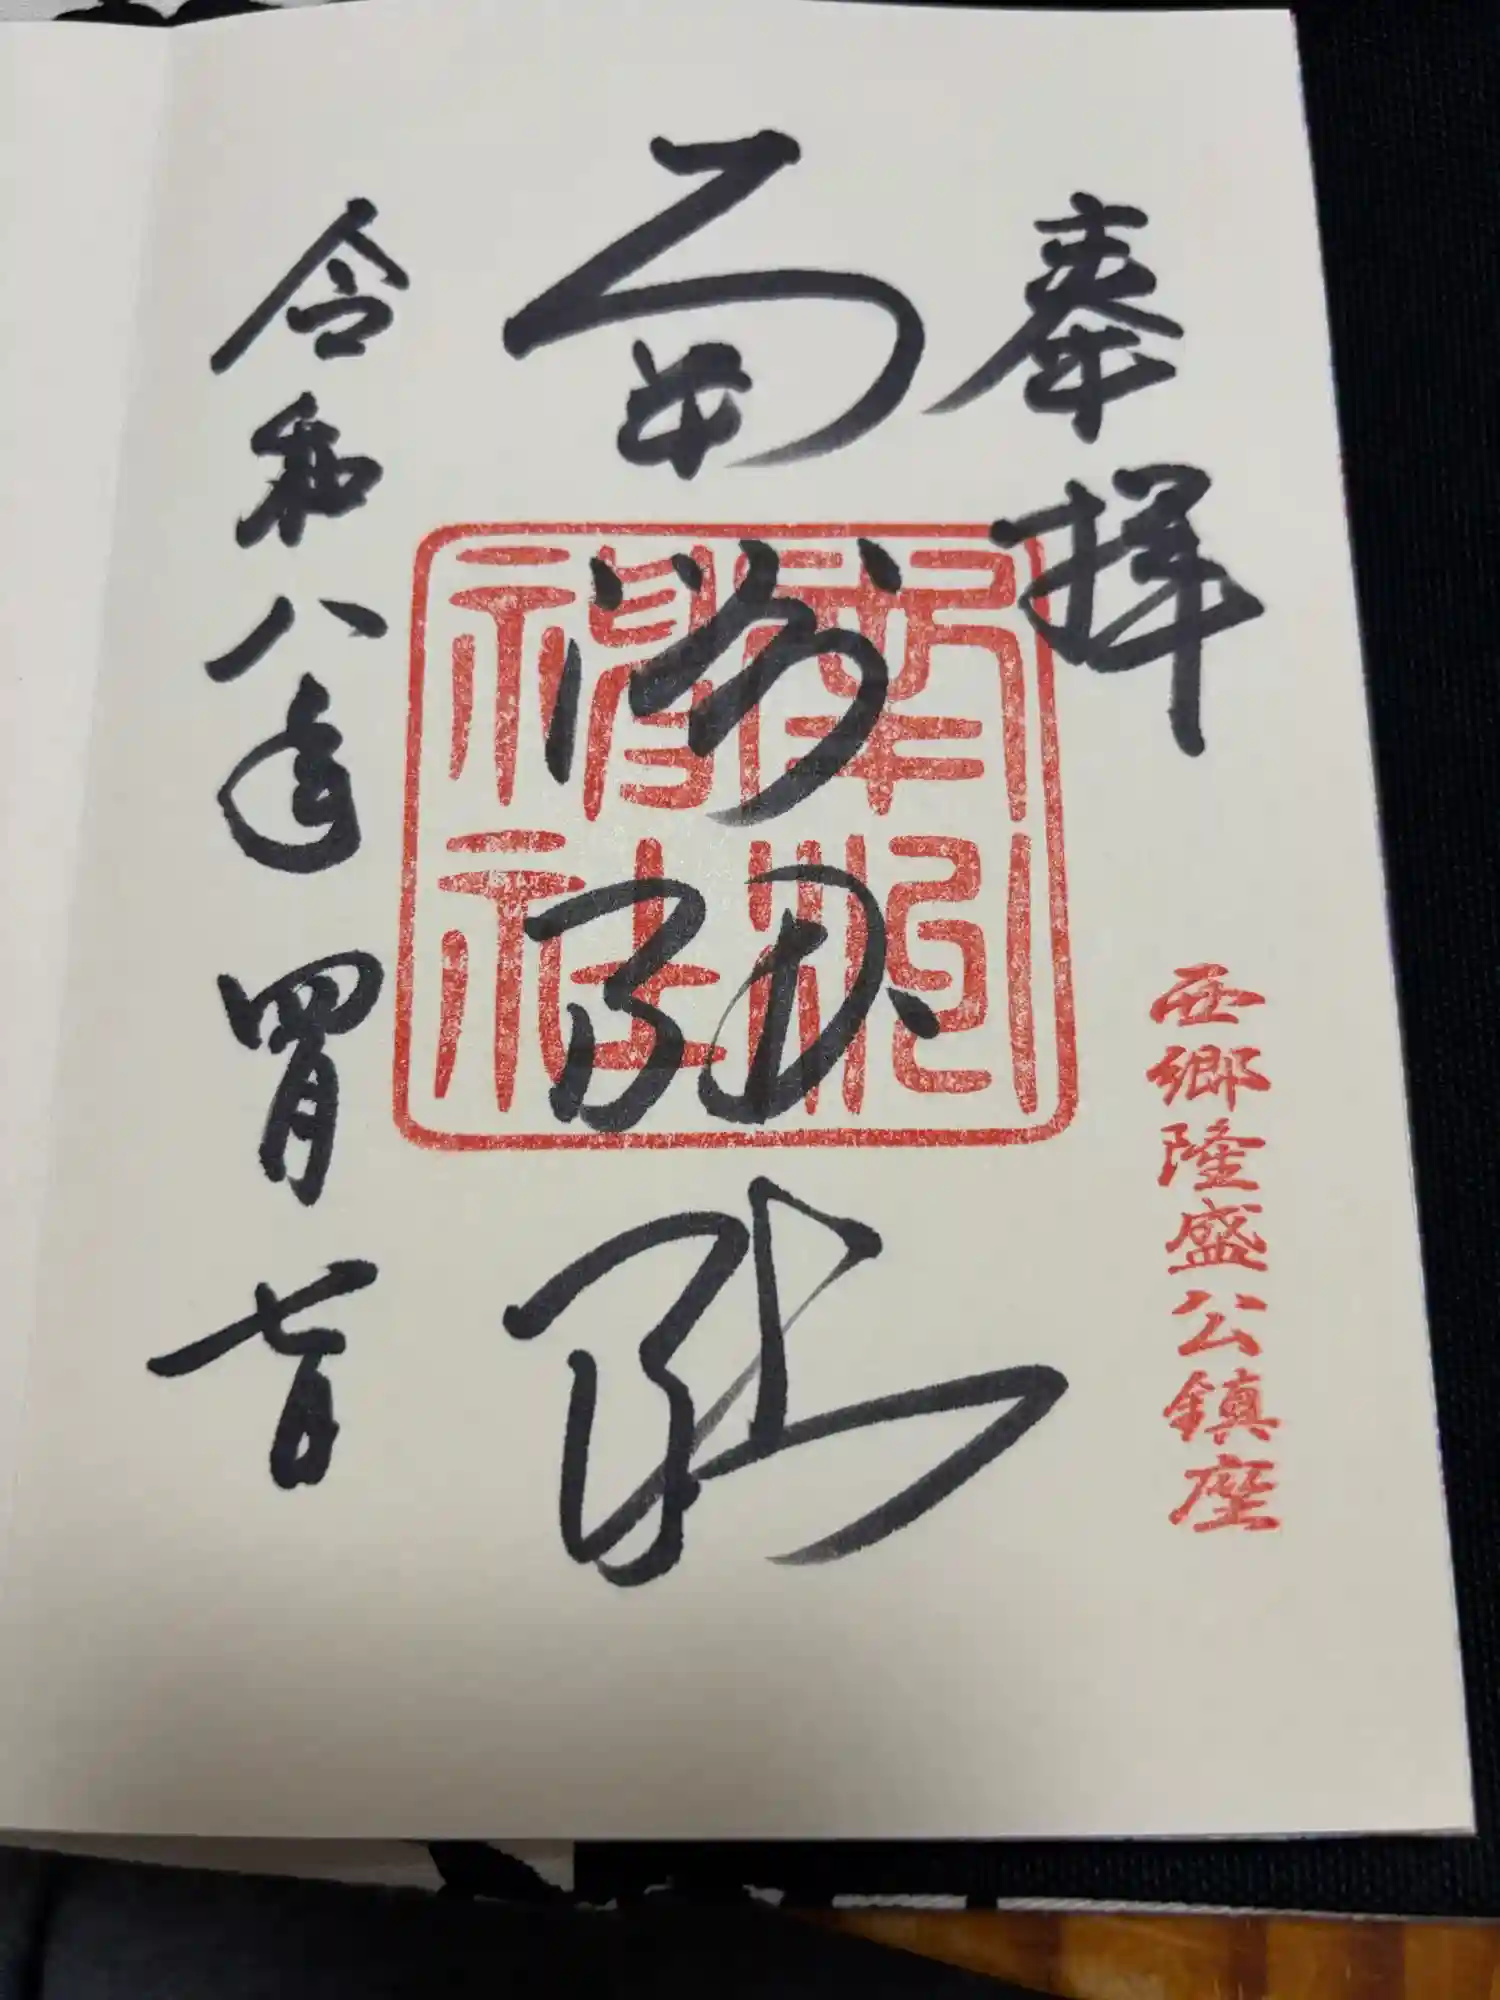 奉拝
西郷隆盛公鎮座
南洲神社
南洲
神社
令和八年四月七日